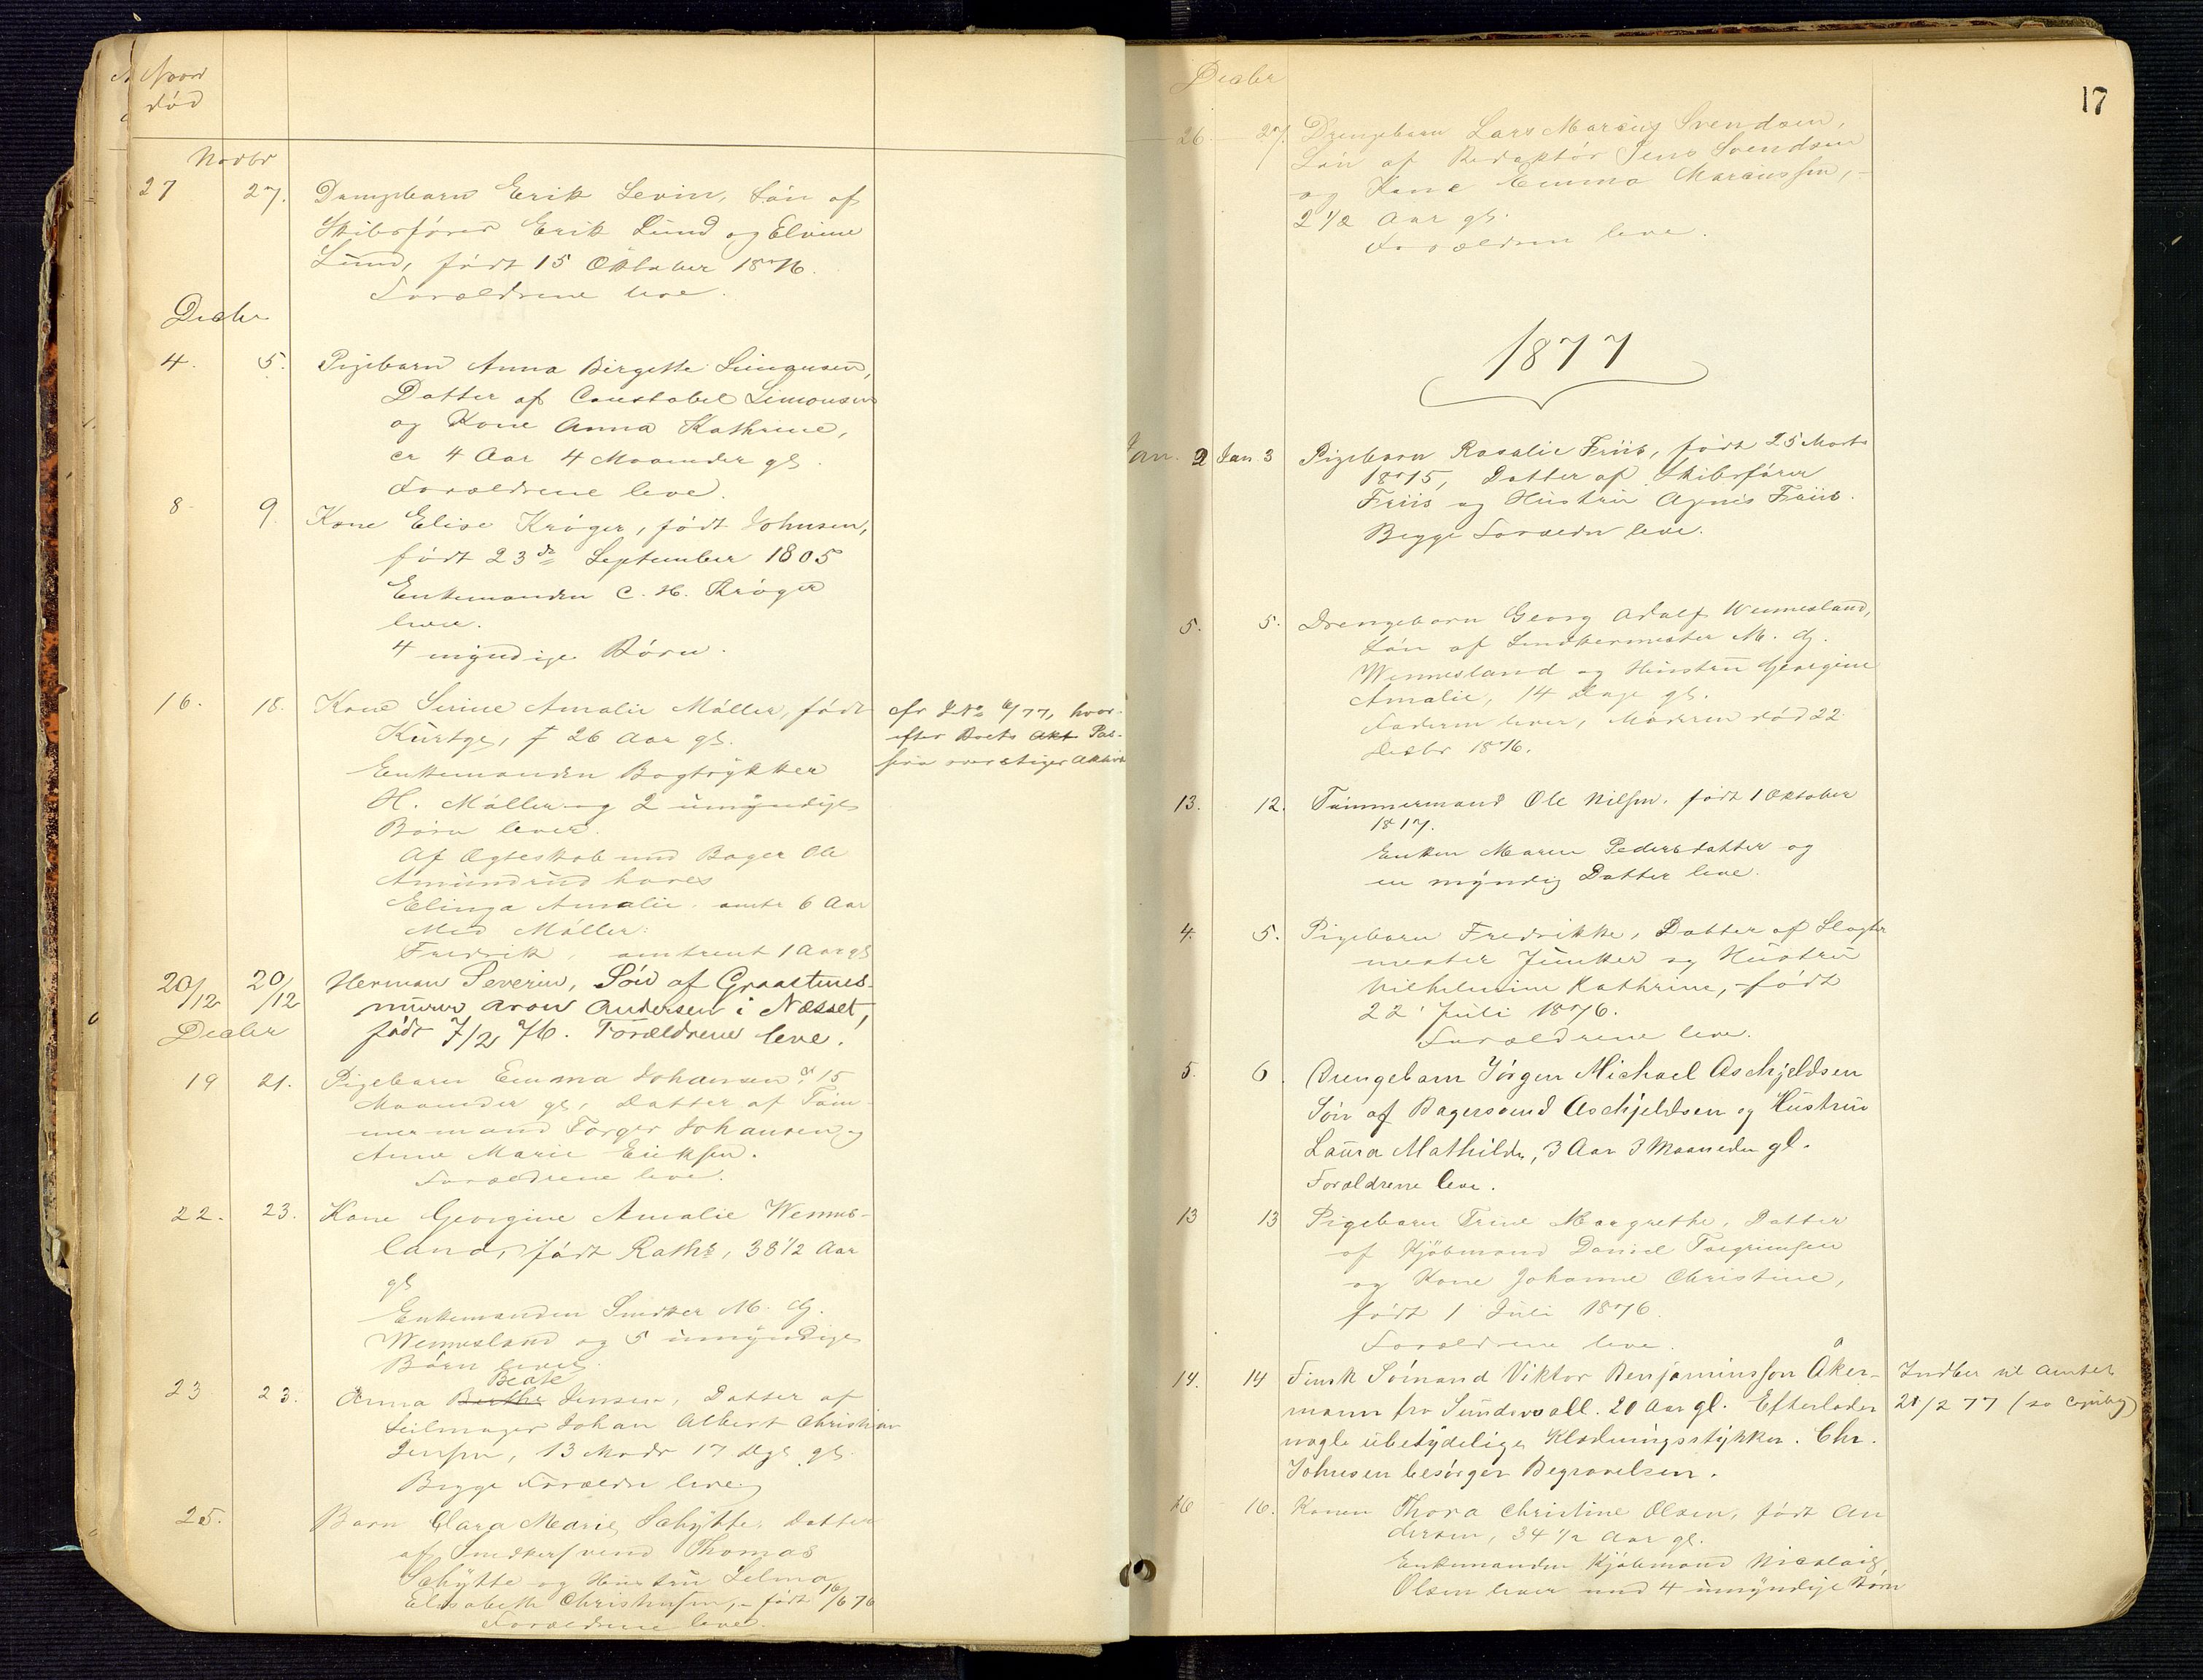 død
Novbr
27 27. Drengebarn Erik Levin, Søn af
Skibsfører Erik Lund og Elvine
Lund, født 15 Oktober 1876.
Forældrene leve.
Decbr
4. 5. Pigebarn Anna Birgitte Simonsen,
Datter af Constabel Simonsen
og Kone Anna Kathrine,
er 4 Aar 4 Maaneder gl.
Forældrene leve.
8 9. Kone Elise Krøger, født Johnsen,
født 23de September 1805
Enkemanden C. H. Krøger
lever.
4 myndige Børn.
16. 18. Kone Sinne Amalie Møller, født
Kürtge, 26 Aar gl.
Enkemanden Bogtrykker
H. Møller og 2 umyndige
Børn lever.
Af Ægteskab med Bager Ole
Amundrud haves
Elinga Amalie omtr 6 Aar
Med Møller:
Fredrik, omtrent 1 Aar gl
cfr J No 6/77, hvor-
efter Boets Akt Pas-
siva overstiger Aktiva
20/12 20/12 Herman Severin, Søn af Graastens-
murer Aron Andersen i Næsset,
født 7/2 76. Forældrene leve.
Decbr
19 21. Pigebarn Emma Johansen 15
Maaneder gl, Datter af Tøm-
mermand Torger Johansen og
Anne Marie Eriksen.
Forældrene leve.
22. 23. Kone Georgine Amalie Wennes-
land, født Rathe, 38 1/2 Aar
gl
Enkemanden Snedker M. G.
Wennesland og 5 umyndige
Børn lever
Beate
23 23. Anna Berthe Jensen, Datter af
Seilmager Johan Albert Christian
Jensen, 13 Mndr 17 Dge gl.
Begge Forældre leve
25. Barn Clara Marie Schytte, Datter
af Snedkersvend Thomas
Schytte og Hustru Selma
Elisabeth Christensen, født 16/6 76
Forældrene leve.
Decbr
17
26 27. Drengebarn Lars Marcus Svendsen,
Søn af Redaktør Jens Svendsen
og Kone Emma Marcussen,
2 1/2 Aar gl.
Forældrene leve.
1877
Jan. 2 Jan. 3 Pigebarn Rosalie Friis, født 25 Marts
1875, Datter af Skibsfører
Friis og Hustru Agnes Friis.
Begge Forældre leve.
5. 5. Drengebarn Georg Adolf Wennesland,
Søn af Snedkermester M. G.
Wennesland og Hustru Georgine
Amalie, 14 Dage gl.
Faderen lever, Moderen død 22
Decbr 1876.
13. 12. Tømmermand Ole Nilsen, født 1 Oktober
1817.
Enken Maren Pedersdatter og
en myndig Datter leve.
4. 5. Pigebarn Fredrikke, Datter af Slagter
mester Junker og Hustru
Vilhelmine Kathrine, født
22 Juli 1876.
Forældrene leve.
5. 6. Drengebarn Jørgen Michael Aschjeldsen
Søn af Bagersvend Aschjeldsen og Hustru
Laura Mathilde, 3 Aar 3 Maaneder gl.
Forældrene leve.
13 13 Pigebarn Trine Margrethe, Datter
af Kjøbmand Daniel Torgrimsen
og Kone Johanne Christine,
født 1 Juli 1876.
Forældrene leve.
14. 14 Finsk Sømand Viktor Benjaminsson Åker-
mann fra Sundsvall. 20 Aar gl. Efterlader
nogle ubetydelige Klædningsstykker. Chr.
Johnsen besørger Begravelsen.
Indber til Amtet
21/2 77 (se
16 16. Konen Thora Christine Olsen, født An
dersen, 34 1/2 Aar gl.
Enkemanden Kjøbmand Nicolai
Olsen lever med 4 umyndige Børn